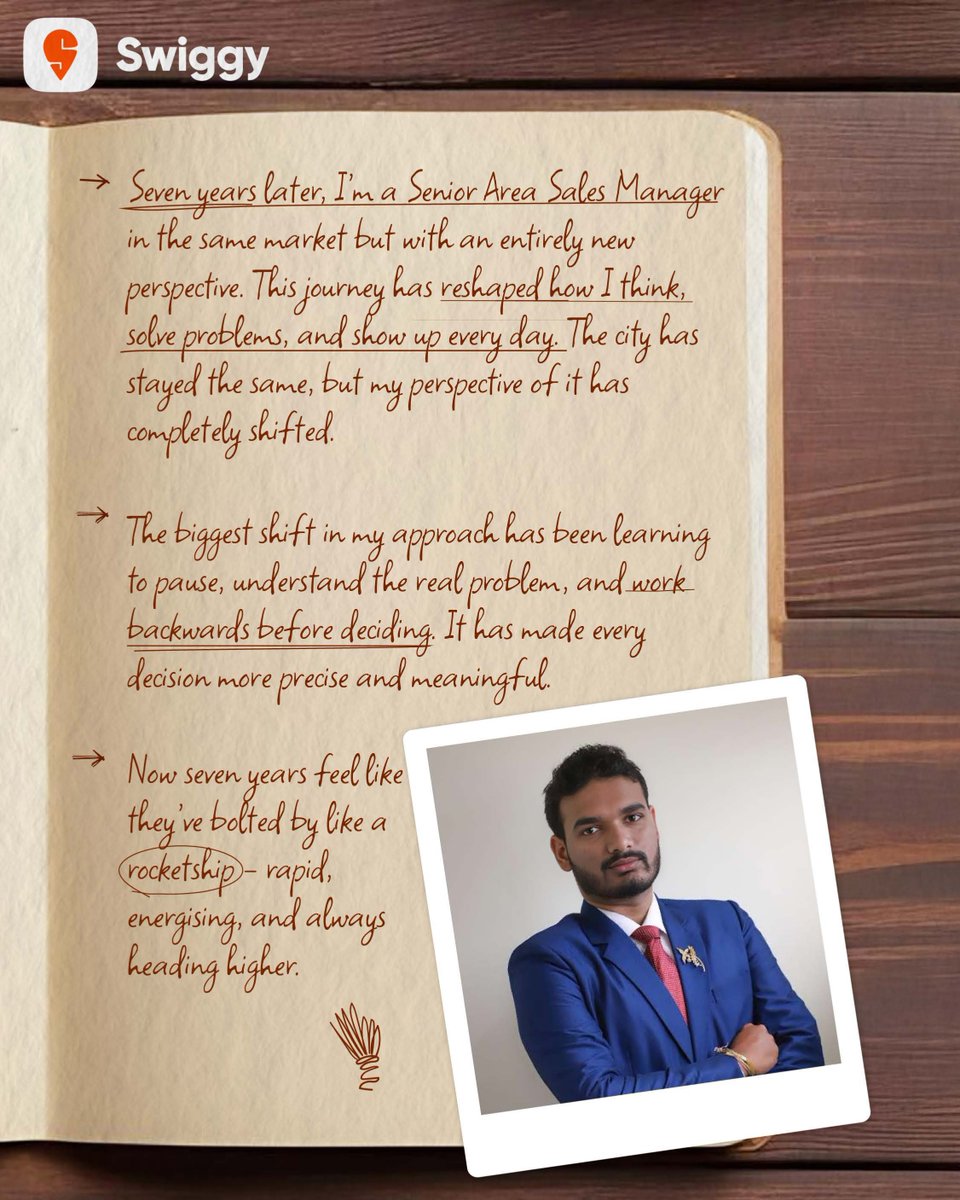 Swiggy
Seven years later, I'm a Senior Area Sales Manager
in the same market but with an entirely new
perspective. This journey has reshaped how I think,
solve problems, and show up every day. The city has
stayed the same, but my perspective of it has
completely shifted.
The biggest shift in my approach has been learning
to pause, understand the real problem, and work
backwards before deciding. It has made every
decision more precise and meaningful.
Now seven years feel like
they've bolted by like a
rocketship – rapid,
energising, and always
heading higher.